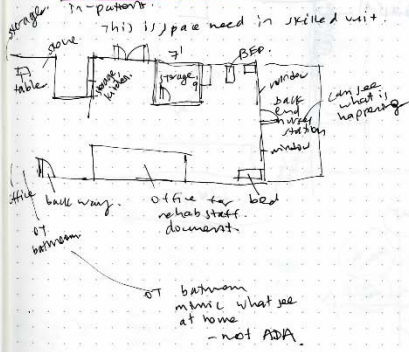 in-patient.
This is space need in skilled unit.
storage
stove
table
7'
BED.
storage
kitchen.
window
back
end
nurses
station
window
can see
what is
happening
office
back way.
office for
rehab staff.
document.
bed
OT
bathroom
OT bathroom
mimic what see
at home
- not ADA.